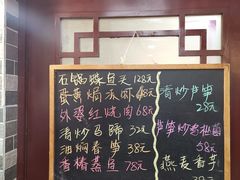 石锅螺豆头128元
蛋黄焗南瓜68元
外婆红烧肉68元
清炒马蹄32元
油焖春笋38元
香椿蒸豆78元
清炒芦笋
28元
芦笋炒
38元
燕麦香芋